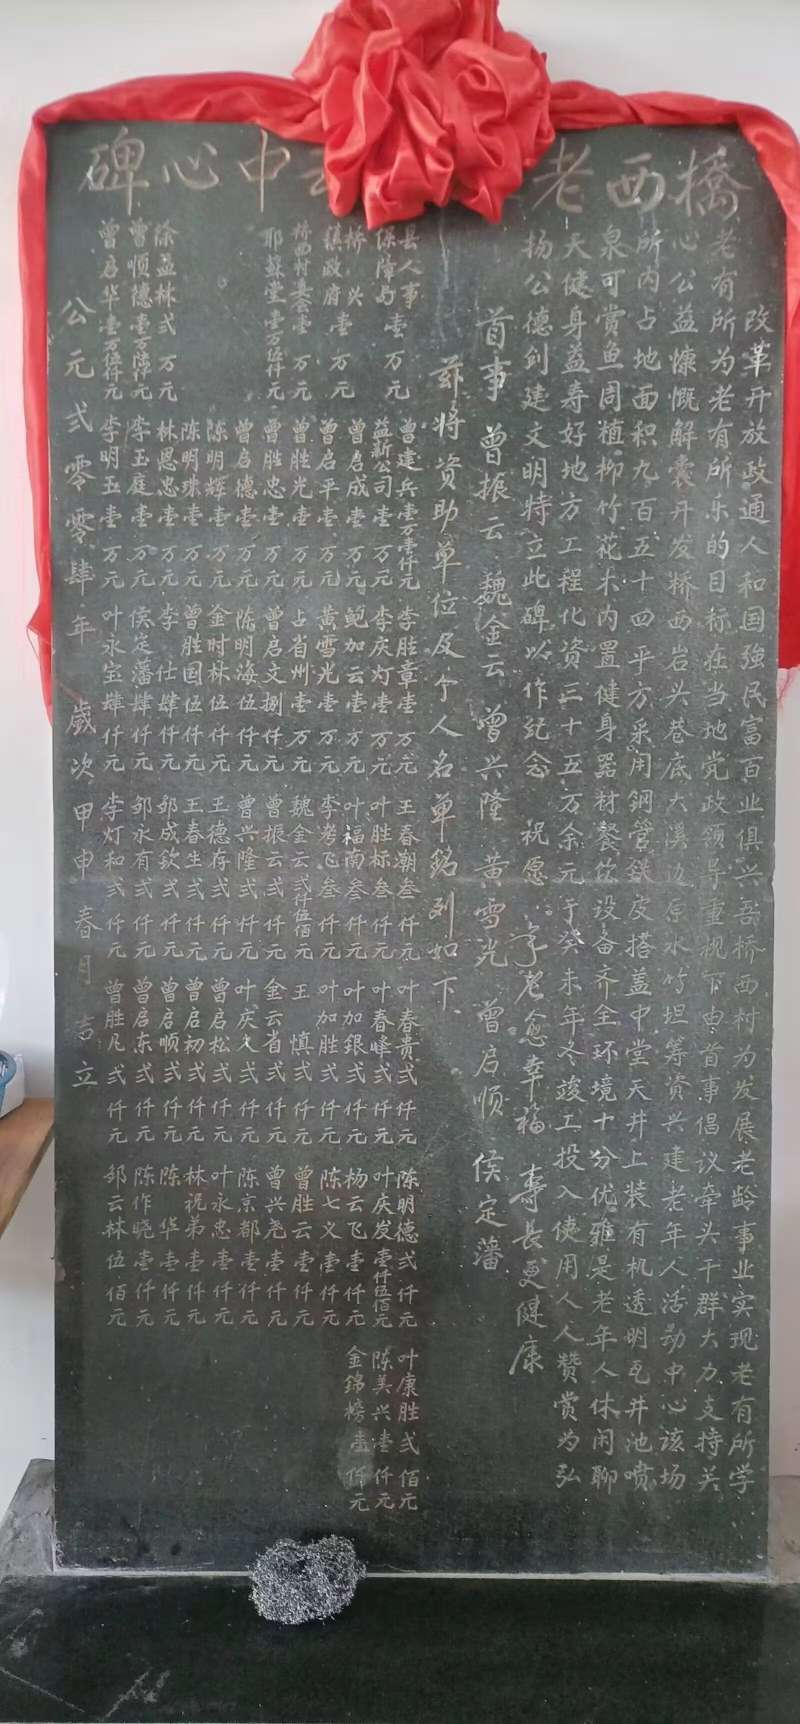 橋西老中心碑
改革开放政通人和国強民富百业俱兴吾桥西村为发展老龄事业实现老有所学
老有所为老有所乐的目标在当地党政领导重视下由首事倡议牵头干群大力支持关
心公益慷慨解囊开发桥西岩头巷底大溪边原水竹坦筹资兴建老年人活动中心该场
所内占地面积九百五十四平方采用钢管鉄皮搭盖中堂天井上装有机透明瓦井池喷
泉可赏鱼周植柳竹花木内置健身器材餐饮设备齐全环境十分优雅是老年人休闲聊
天健身益寿好地方工程化资三十五万余元于癸未年冬竣工投入使用人人赞赏为弘
扬公德创建文明特立此碑以作纪念 祝愿 老愈幸福 寿长更健康
首事 曾振云 魏金云 曾兴隆 黄雪光 曾启顺 侯定藩
兹将资助单位及个人名单銘列如下
县人事 保障局 壹万元
桥兴 壹万元
镇政府 壹万元
桥西村基金会壹万元
耶蘇堂 壹万伍仟元
徐益林弍万元
曾顺德壹万陆仟元
曾启华壹万伍仟元
曾建兵壹万壹仟元
益新公司壹万元
曾启成壹万元
曾启平壹万元
曾胜光壹万元
曾胜忠壹万元
曾启德壹万元
陈明辉壹万元
陈明珠壹万元
林恩忠壹万元
李玉庭壹万元
李明玉壹万元
李胜章壹万元
李庆灯壹万元
鲍加云壹万元
黄雪光壹万元
占省州壹万元
曾启文捌仟元
陈明海伍仟元
金时林伍仟元
曾胜国伍仟元
李仕肆仟元
侯定藩肆仟元
叶永宝肆仟元
王春潮叁仟元
叶胜标叁仟元
叶福南叁仟元
李岩飞叁仟元
魏金云弍仟伍佰元
曾振云弍仟元
曾兴隆弍仟元
王德存弍仟元
王春生弍仟元
邹成钦弍仟元
邹永有弍仟元
李灯和弍仟元
叶春贵弍仟元
叶春峰弍仟元
叶加銀弍仟元
叶加胜弍仟元
王慎弍仟元
金云省弍仟元
叶庆久弍仟元
曾启松弍仟元
曾启初弍仟元
曾启顺弍仟元
曾启东弍仟元
曾胜凡弍仟元
陈明德弍仟元
叶庆发壹仟伍佰元
杨云飞壹仟元
陈七义壹仟元
曾胜云壹仟元
曾兴尧壹仟元
陈京都壹仟元
叶永忠壹仟元
林祝弟壹仟元
陈华壹仟元
陈作晓壹仟元
邹云林伍佰元
叶康胜弍佰元
陈美兴壹仟元
金錦榜壹仟元
公元弍零零肆年 歲次甲申春月吉立